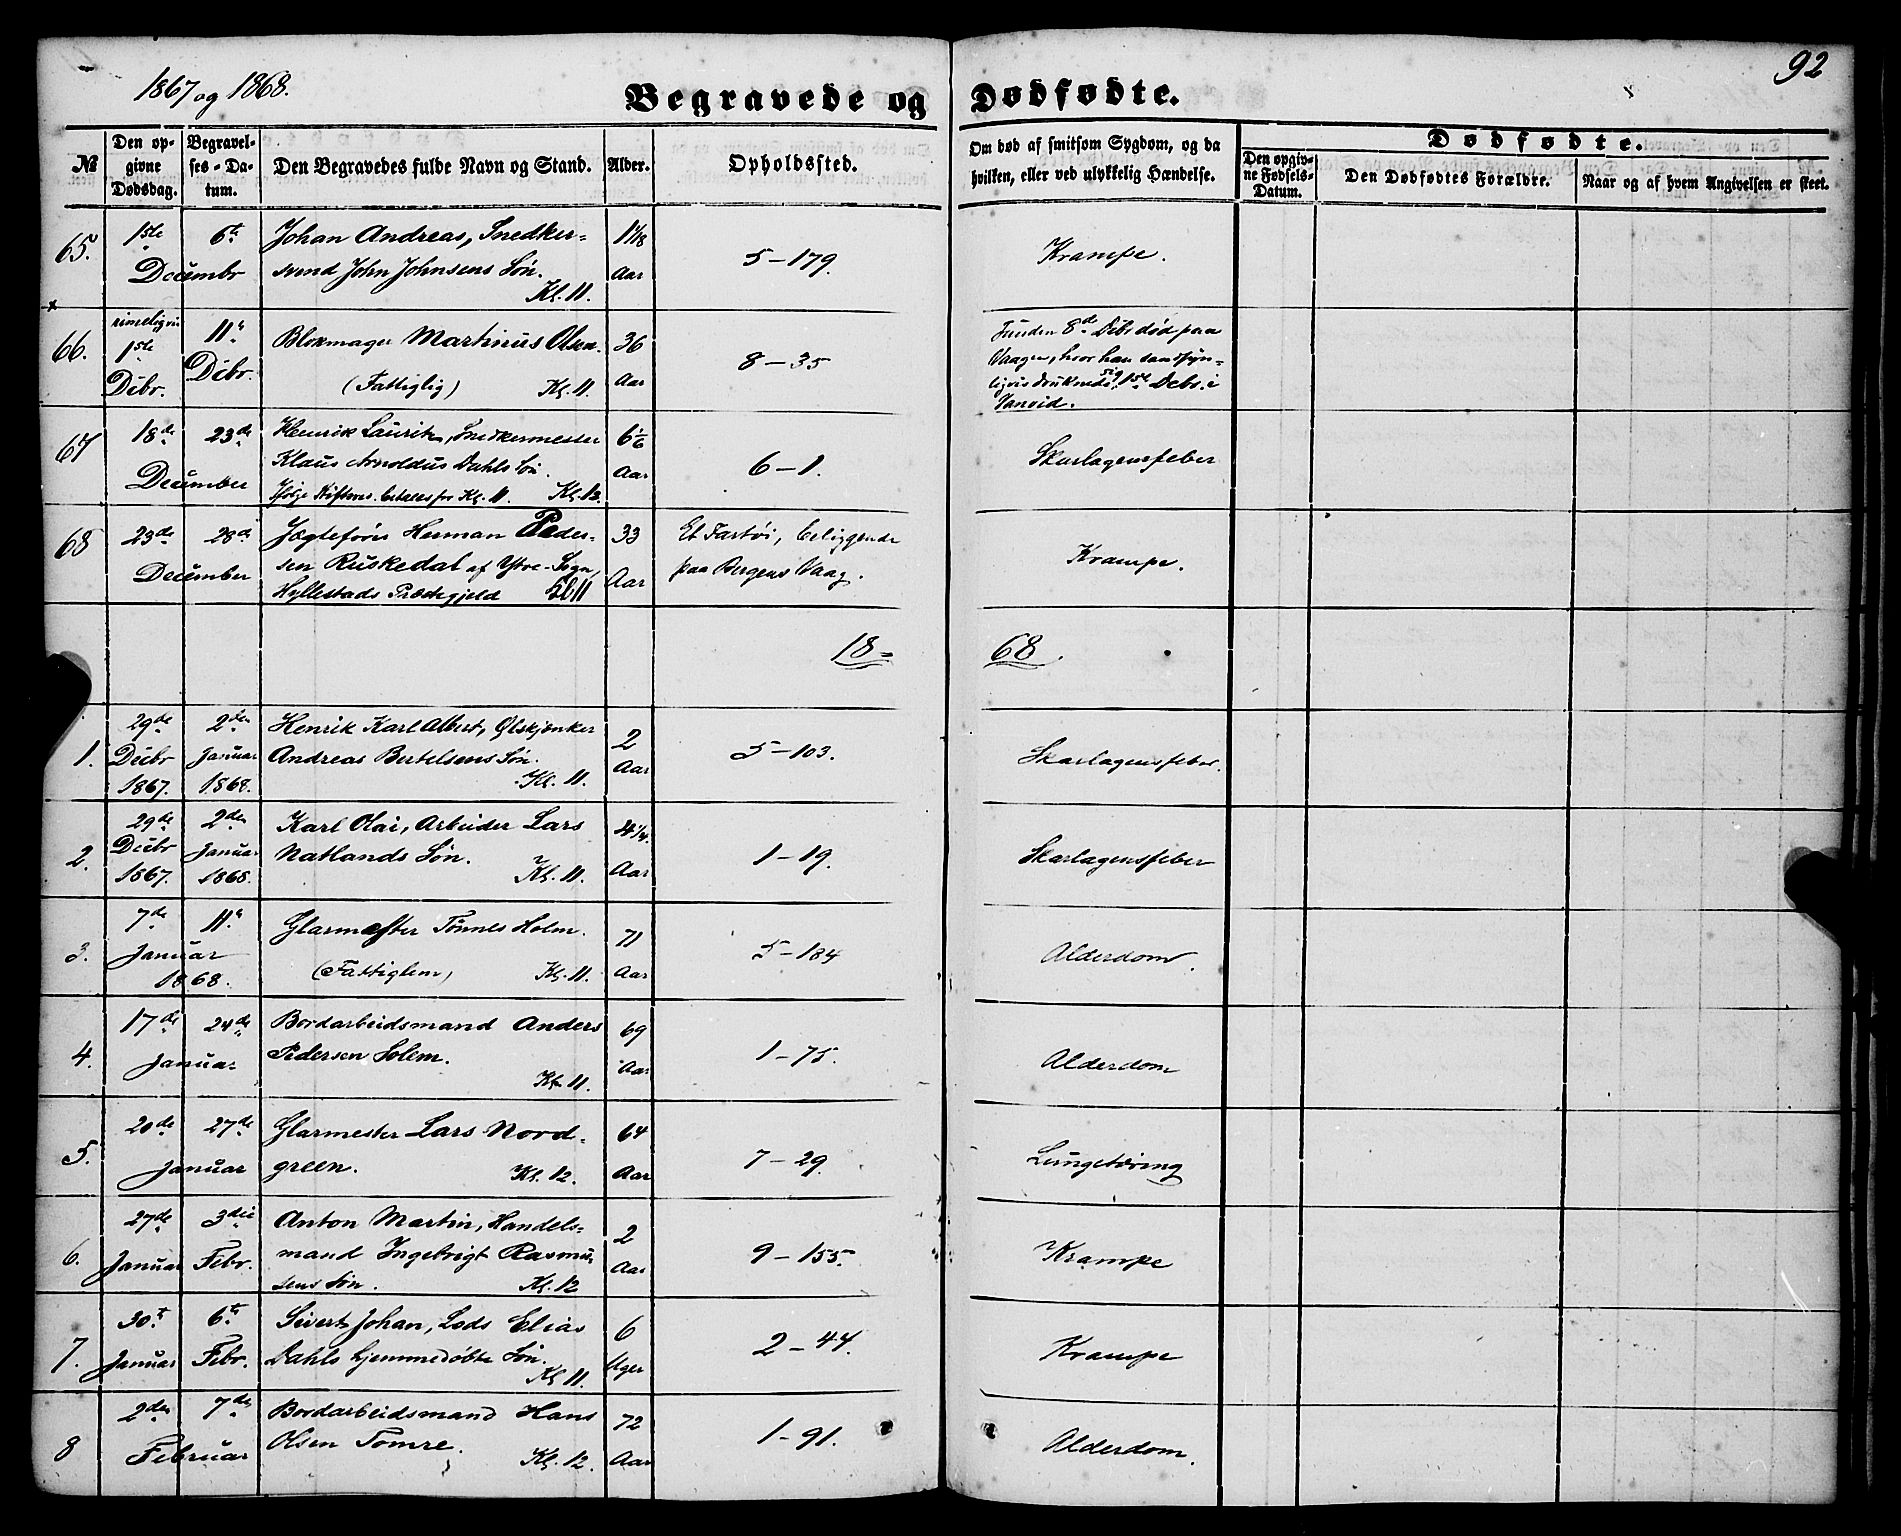 1867 og 1868.
92
Begravede og Dødfødte.
№
Den op-
givne
Dødsdag.
Begravel-
ses-Da-
tum.
Den Begravedes fulde Navn og Stand.
Alder.
Opholdssted.
Om død af smitsom Sygdom, og da
hvilken, eller ved ulykkelig Hændelse.
Dødfødte.
Den opgiv-
ne Fødsels-
Datum.
Den Dødfødtes Forældre.
Naar og af hvem Angivelsen er skeet.
65.
1ste 6te
Decembr
Johan Andreas, Snedker-
svend John Johnsens Søn.
Kl. 11.
Aar
5-179.
Krampe.
66.
rimeligvis
1ste
Decbr.
11te
Decbr.
Blokmager Martinus Olsen.
(Fattiglig) Kl. 11.
36
Aar
8-35
Funden 8de Decbr død paa
Vaagen, hvor han sandsyn-
ligvis druknede sig 1ste Debr. i
Vanvid.
67
18de 23de
December
Henrik Lauritz, Snedkermester
Klaus Arnoldus Dahls Søn.
betales for Kl. 11. Kl. 12.
6 1/6
Aar
6-1.
Skarlagensfeber
68
23de 28de
December
Jægtefører Herman Peder-
sen Ruskedal af Ytre-Sogn,
Hyllestads Præstegjeld Kl 11
33
Aar
Et Fartøi, beliggende
paa Bergens Vaag.
Krampe.
18= 68.
1.
29de
Decbr
1867.
2den
Januar
1868.
Henrik Karl Albert, Ølskjenker
Andreas Bertelsens Søn.
Kl. 11.
2
Aar
5-103.
Skarlagensfeber.
2.
29de
Decbr
1867.
2den
Januar
1868.
Karl Olai, Arbeider Lars
Natlands Søn.
Kl. 11.
4 1/4
Aar
1-19.
Skarlagensfeber
3.
7de 11te
Januar
1868.
Glarmester Tønnes Holm.
(Fattiglem) Kl. 11.
71
Aar
5-184
Alderdom.
4.
17de 24de
Januar
Bordarbeidsmand Anders
Pedersen Solem.
Kl. 11.
69
Aar
1-75.
Alderdom
5.
20de 27de
Januar
Glarmester Lars Nord-
green. Kl. 12.
64
Aar
7-29
Lungetæring
6.
27de
Januar
3die
Febr.
Anton Martin, Handels-
mand Ingebrigt Rasmu-
sens Søn. Kl. 12
2
Aar
9-155.
Krampe
7.
30te
Januar
6te
Febr.
Sivert Johan, Lods Elias
Dahls hjemmedøbte Søn.
Kl 11.
6
Uger
2-44.
Krampe
8
2den 7de
Februar
Bordarbeidsmand Hans
Olsen Tomre. Kl. 12.
72
Aar
1-91.
Alderdom.